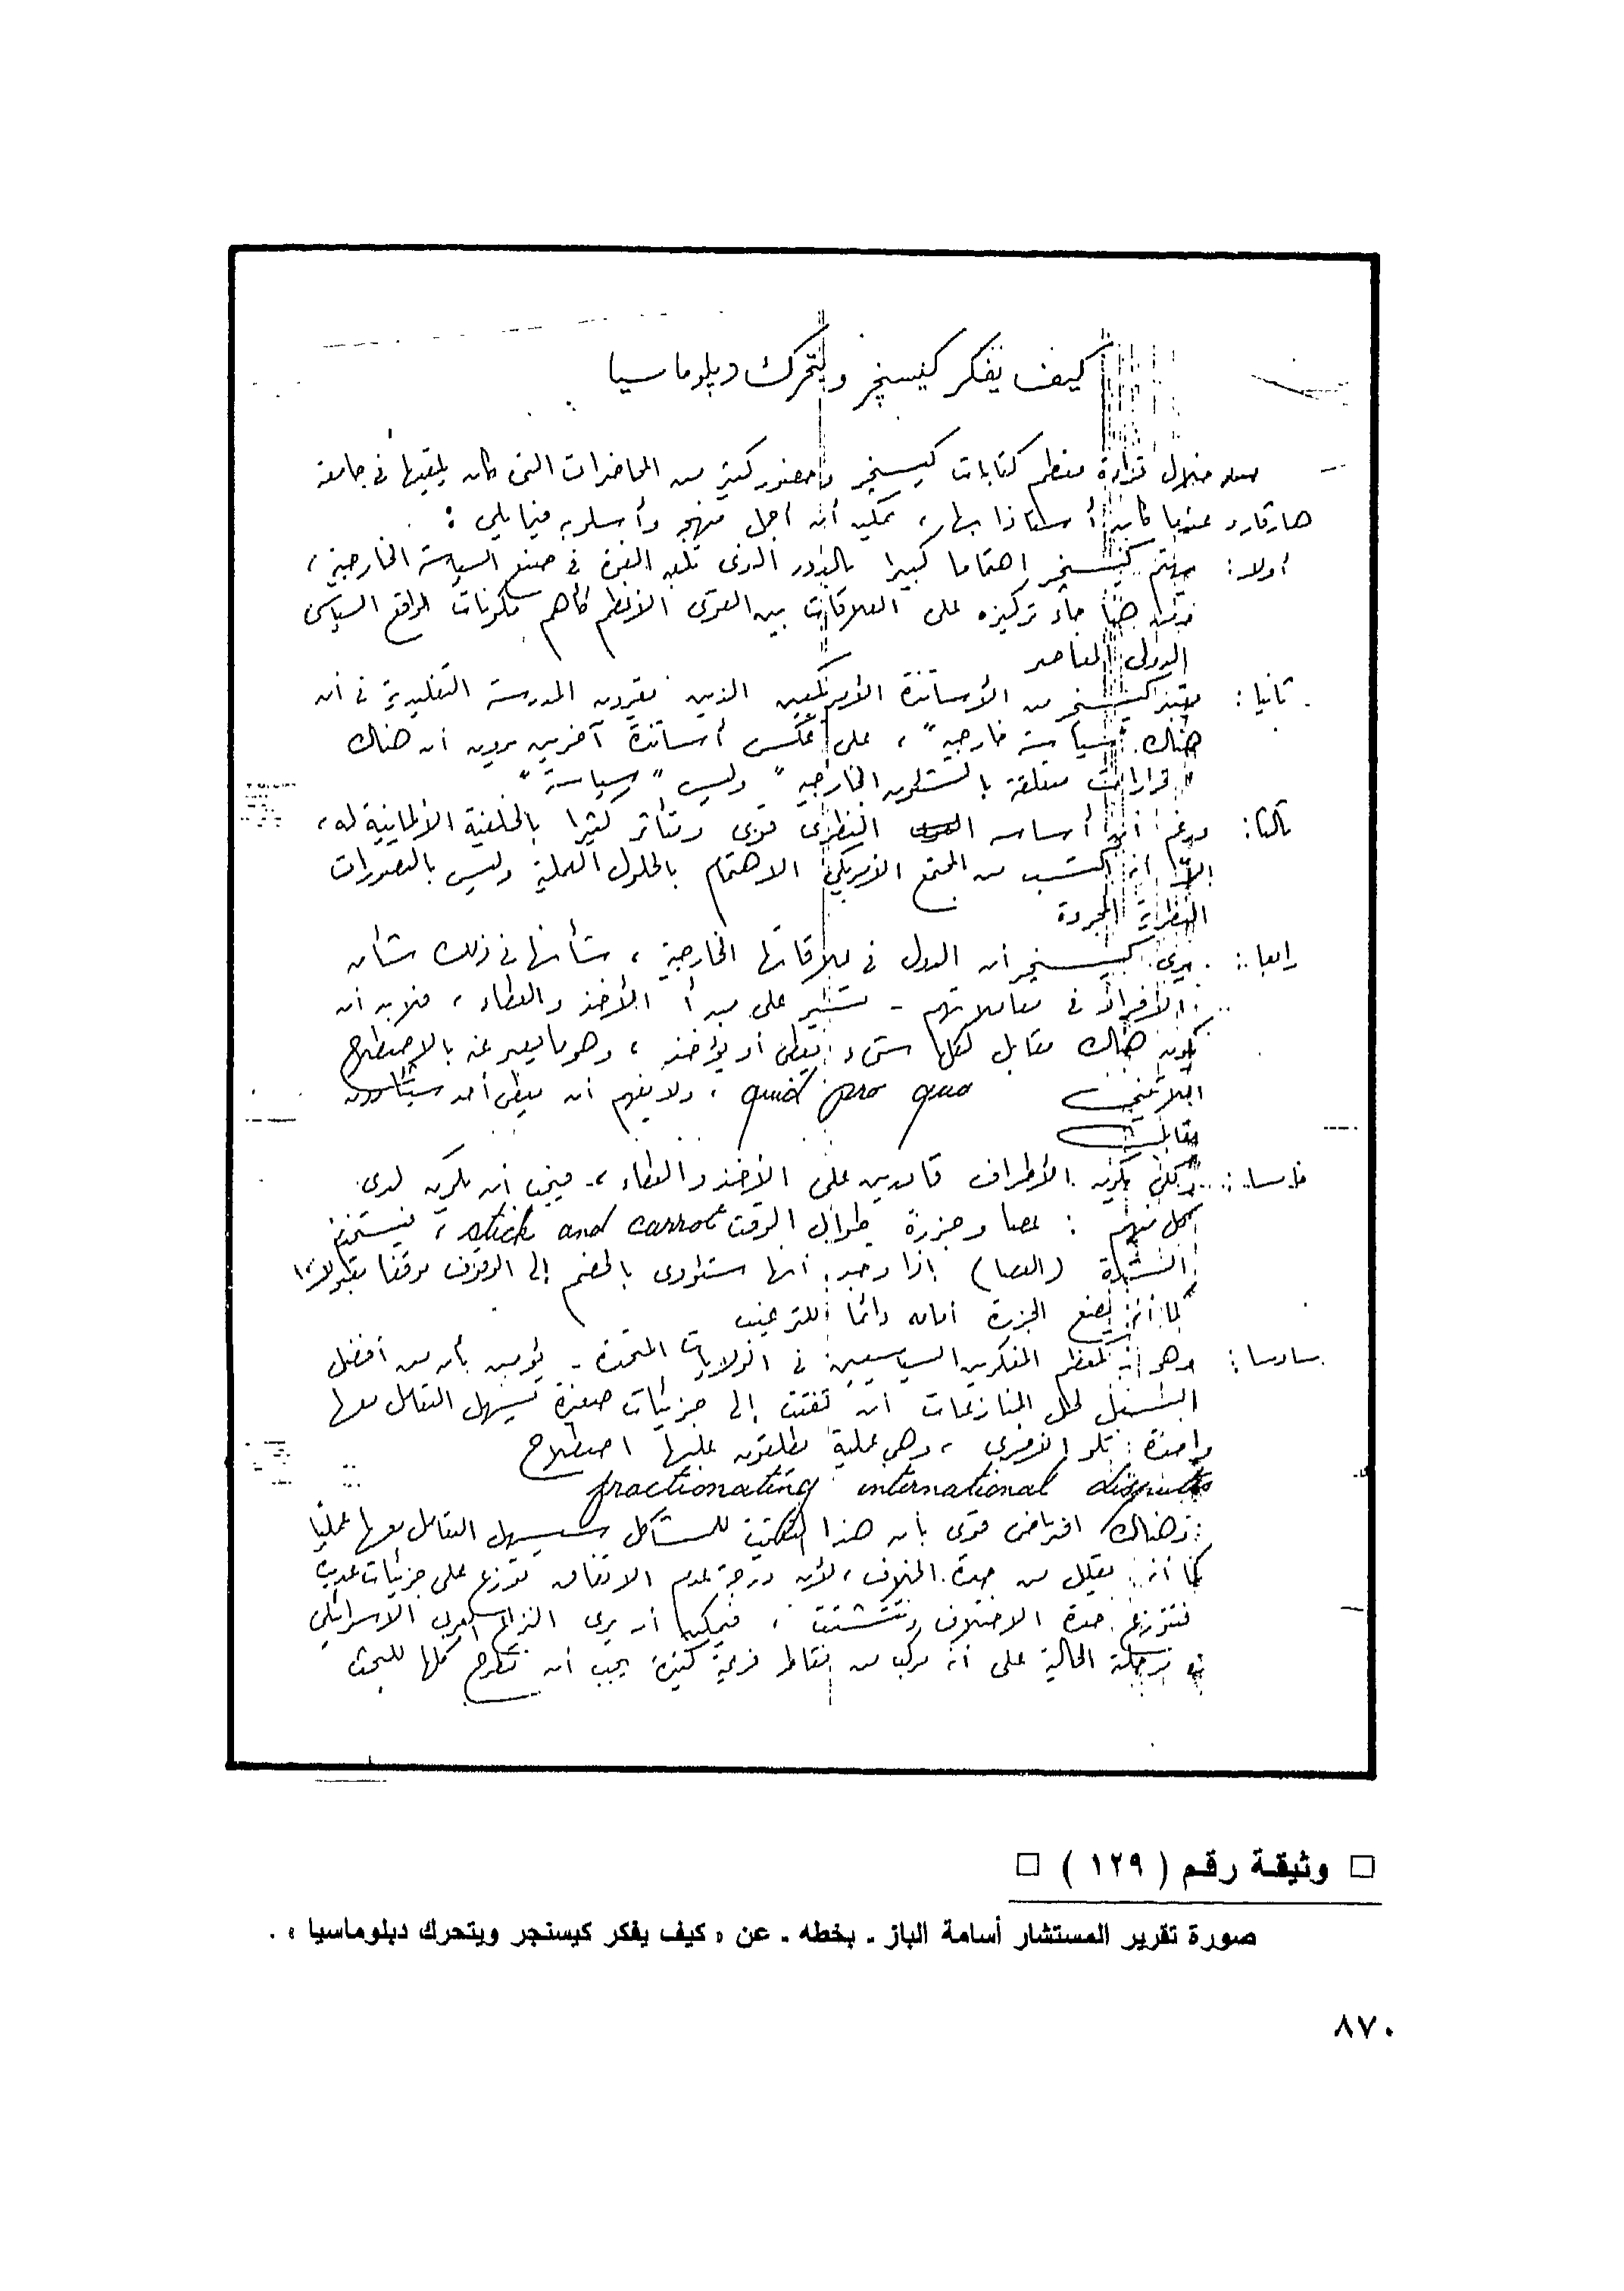 كيف يفكر كيسنجر ويتحرك دبلوماسيا
من خلال قراءة معظم كتابات كيسنجر وحضور كثير من المحاضرات التى كان يلقيها فى جامعة
هارفارد عندما كان أستاذا بها، يمكن أن أجمل منهجه وأسلوبه فيما يلى :
أولا : يهتم كيسنجر اهتماما كبيرا بالدور الذى تلعبه القوة فى صنع السياسة الخارجية ،
ومن هنا جاء تركيزه على العلاقات بين القوى الأعظم كأهم مكونات الواقع السياسى
الدولى المعاصر
ثانيا : يعتبر كيسنجر من الأساتذة الأمريكيين الذين يقرون المدرسة التقليدية فى أن
هناك "سياسة خارجية" ، على عكس أساتذة آخرين يرون أن هناك
"قرارات متعلقة بالشئون الخارجية" وليس "سياسة"
ثالثا : ورغم أن أساسه النظرى قوى ومتأثر كثيرا بالخلفية الألمانية له ،
إلا أنه اكتسب من المجتمع الأمريكى الاهتمام بالحلول العملية وليس بالتصورات
النظرية المجردة
رابعا : يرى كيسنجر أن الدول فى علاقاتها الخارجية ، شأنها فى ذلك شأن
الأفراد فى معاملاتهم - تسير على مبدأ الأخذ والعطاء ، فلابد أن
يكون هناك مقابل لكل شىء يعطى أو يؤخذ ، وهو ما يعبر عنه بالاصطلاح
اللاتينى quid pro quo ، ولا يفهم أن يعطى أحد شيئا دون
مقابل
خامسا : ولكى يكون الأطراف قادرين على الأخذ والعطاء ، فيجب أن يكون لدى
كل منهم : عصا وجزرة طوال الوقت stick and carrot ، فيستخدم
الشدة (العصا) إذا وجد أنها ستؤدى بالخصم إلى الوقوف موقفا مقبولا ،
كما أنه يضع الجزرة أمامه دائما للترغيب
سادسا : وهو كمعظم المفكرين السياسيين فى الولايات المتحدة - يؤمن بأن من أفضل
السبل لحل المنازعات أن تفتت إلى جزئيات صغيرة يسهل التعامل معها
واحدة تلو الأخرى ، وهى عملية يطلقون عليها اصطلاح
fractionating international disputes
وهناك افتراض قوى بأن هذا التفتيت للمشاكل سيسهل التعامل معها عمليا
كما أنه يقلل من حدة الخلاف ، لأن درجة عدم الاتفاق توزع على جزئيات عديدة
فتتوزع حدة الاختلاف وتتشتت ، فيمكن أن يرى النزاع العربى الاسرائيلى
فى مرحلته الحالية على أنه مركب من نقاط فرعية كثيرة يجب أن تطرح كلها للبحث
□ وثيقة رقم ( ١٢٩ ) □
صورة تقرير المستشار أسامة الباز - بخطه - عن « كيف يفكر كيسنجر ويتحرك دبلوماسيا » .
٨٧٠